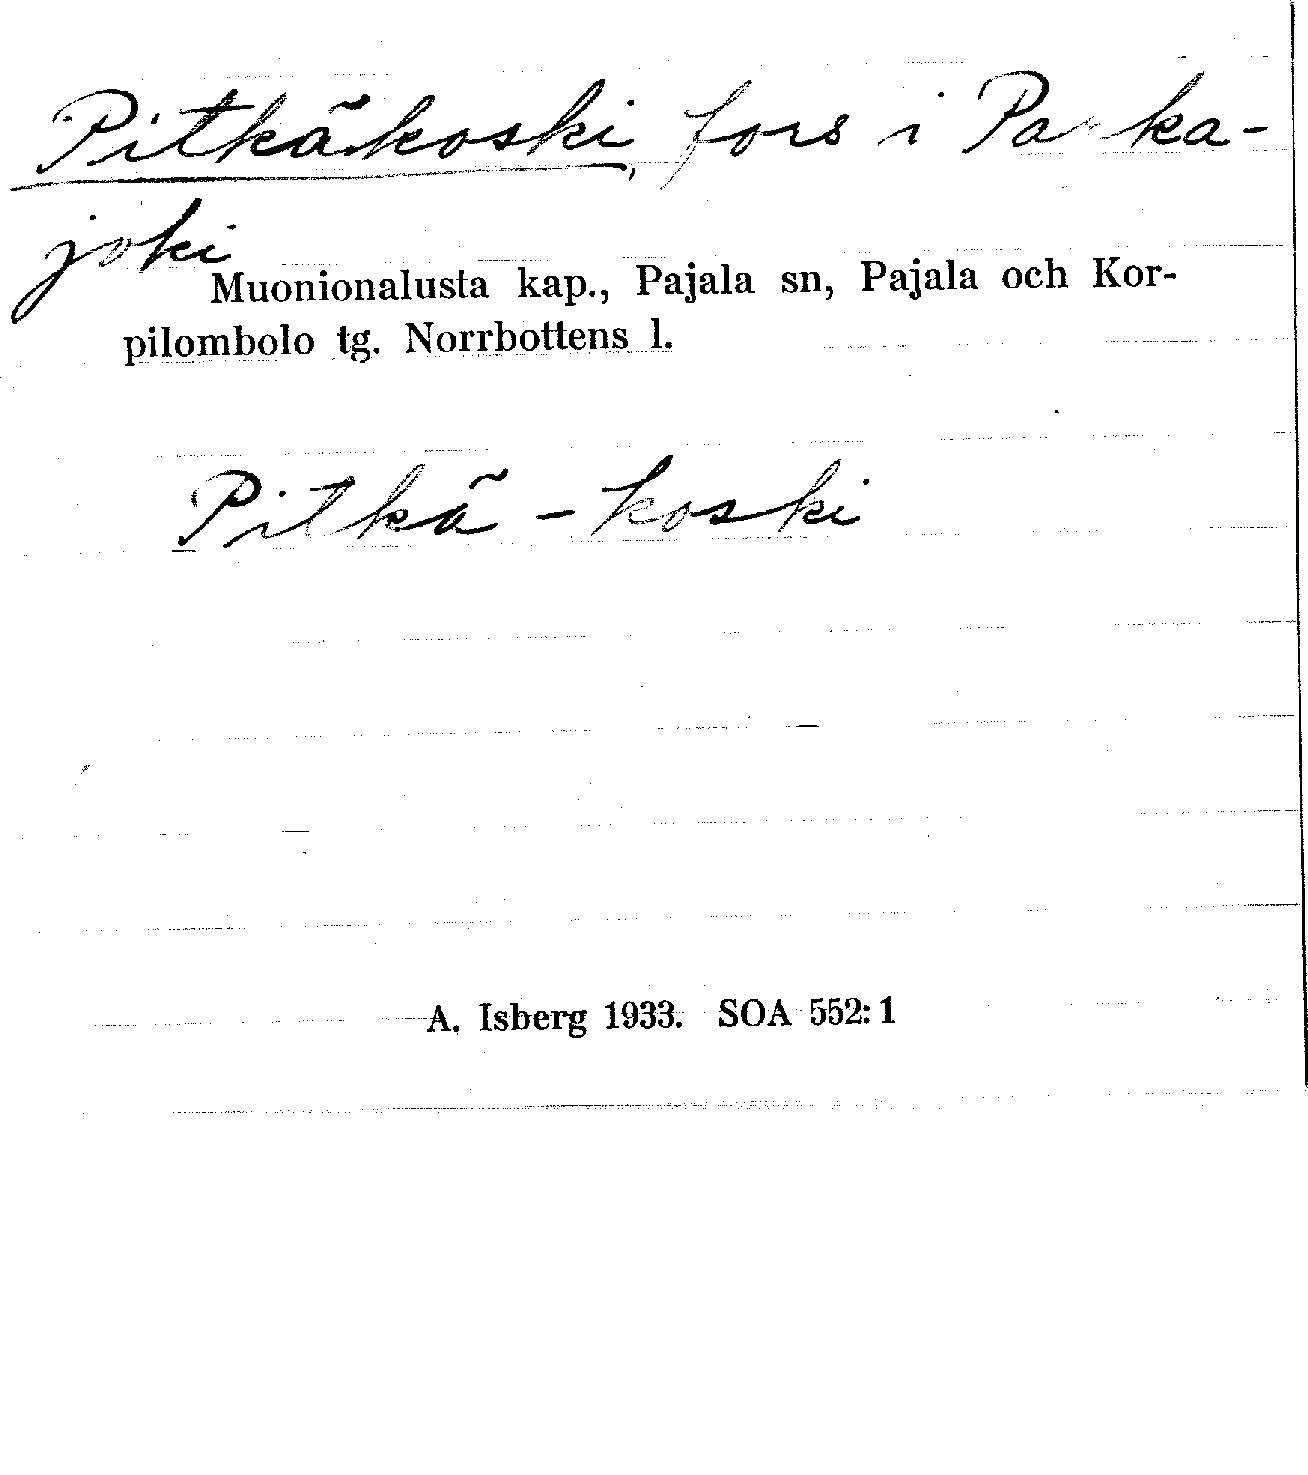 Pitkäkoski, fors i Parka-
joki
Muonionalusta kap., Pajala sn, Pajala och Kor-
pilombolo tg. Norrbottens l.
Pitkä - koski
A. Isberg 1933. SOA 552:1